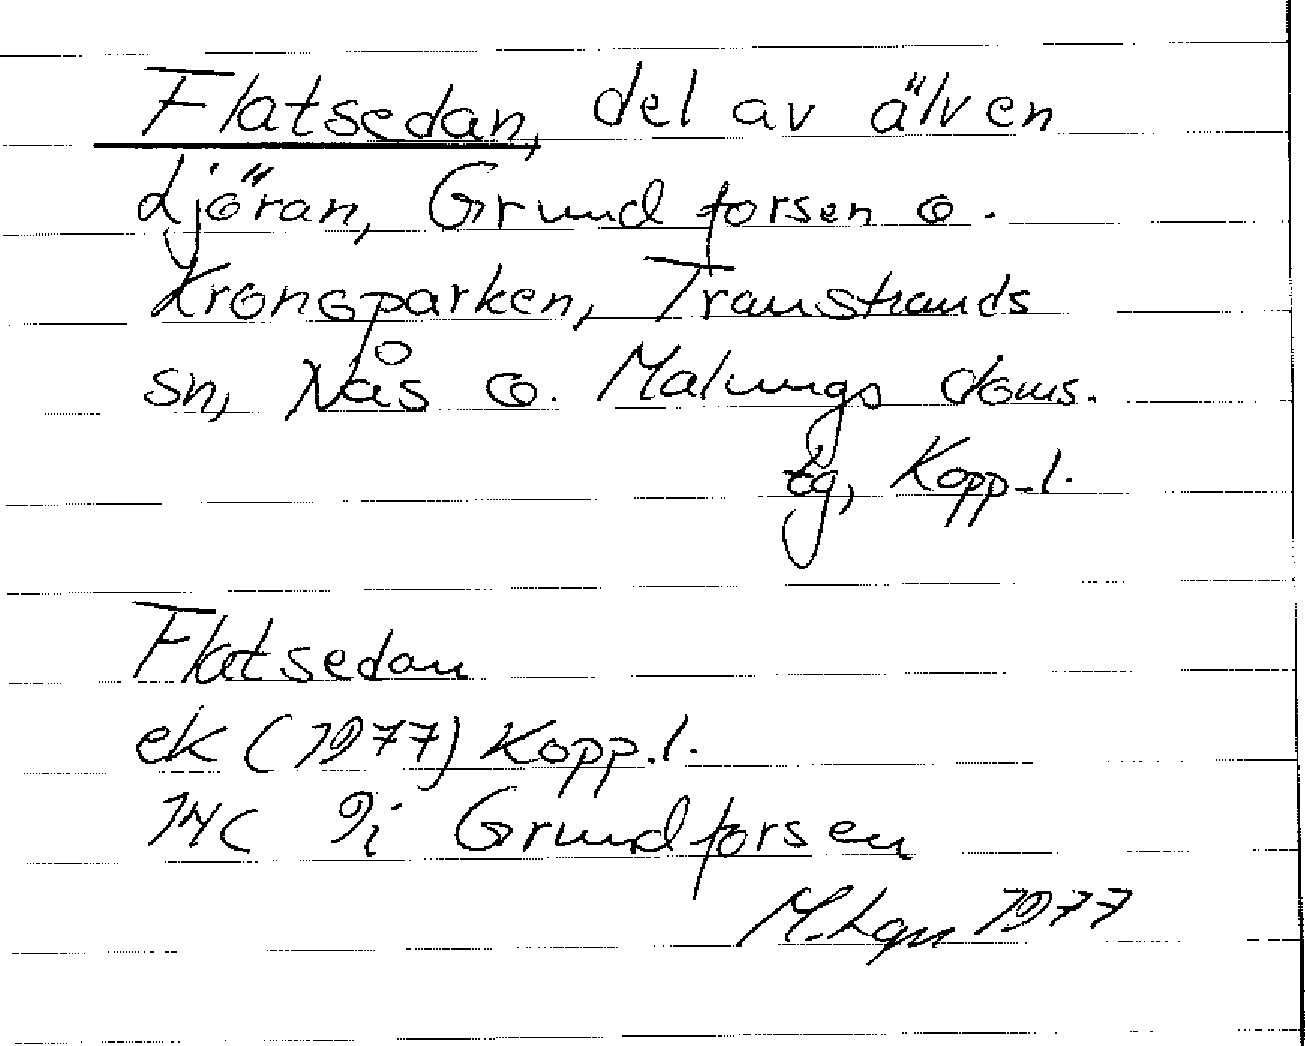 Flatsedan, del av älven
Ljöran, Grundforsen o.
Kronoparken, Transtrands
sn, Nås o. Malungs doms.
tg, Kopp.l.
Flatsedan
ek (1977) Kopp.l.
14C 9i Grundforsen
M.Lgn 1977